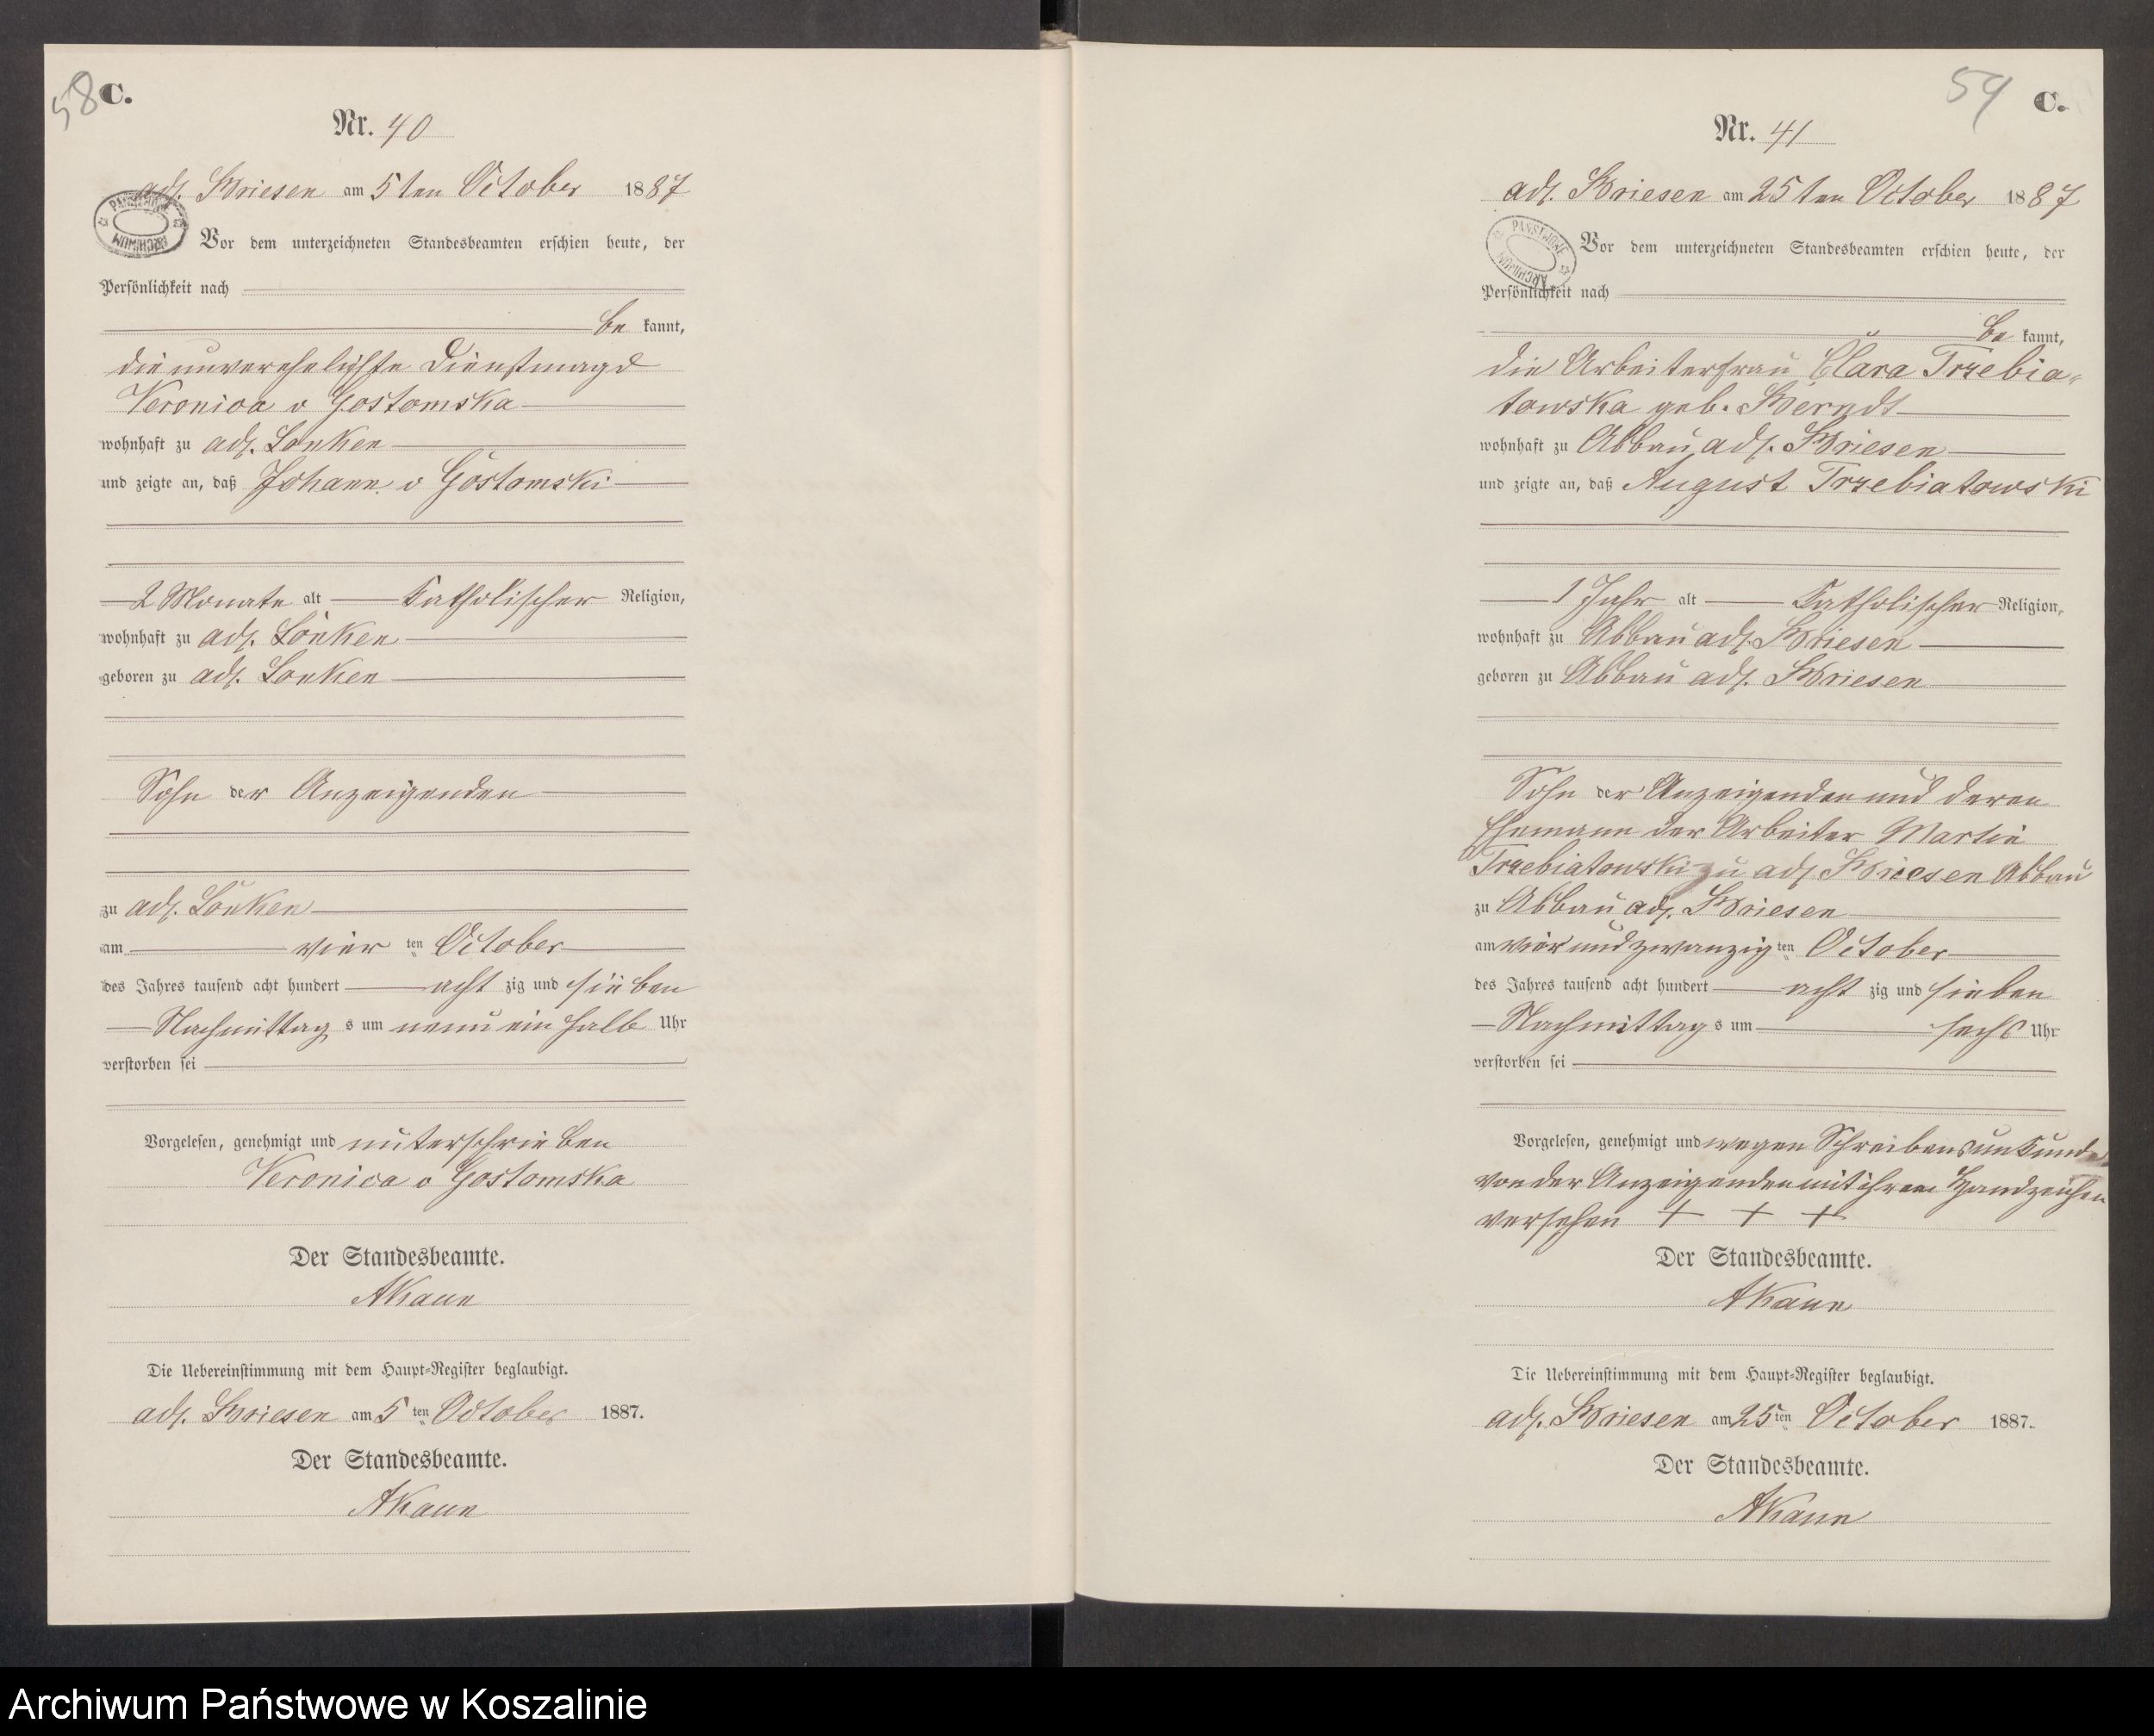 58 C.
Nr. 40
adl. Briesen am 5ten October 1887
PAŃSTWOWE ARCHIWUM
Vor dem unterzeichneten Standesbeamten erschien heute, der
Persönlichkeit nach
be kannt,
die unverehelichte Dienstmagd
Veronica v Gostomska
wohnhaft zu adl. Lonken
und zeigte an, daß Johann v Gostomski
2 Monate alt Katholischer Religion,
wohnhaft zu adl. Lonken
geboren zu adl. Lonken
Sohn der Anzeigenden
zu adl. Lonken
am vier ten October
des Jahres tausend acht hundert acht zig und sieben
Nachmittag s um neun ein halb Uhr
verstorben sei
Vorgelesen, genehmigt und unterschrieben
Veronica v Gostomska
Der Standesbeamte.
AKaun
Die Uebereinstimmung mit dem Haupt-Register beglaubigt.
adl. Briesen am 5 ten October 1887.
Der Standesbeamte.
AKaun
59 C.
Nr. 41
adl. Briesen am 25ten October 1887
PAŃSTWOWE ARCHIWUM
Vor dem unterzeichneten Standesbeamten erschien heute, der
Persönlichkeit nach
be kannt,
die Arbeiterfrau Clara Trzebia-
towska geb. Berndt
wohnhaft zu Abbau adl. Briesen
und zeigte an, daß August Trzebiatowski
1 Jahr alt Katholischer Religion,
wohnhaft zu Abbau adl. Briesen
geboren zu Abbau adl. Briesen
Sohn der Anzeigenden und deren
Ehemann der Arbeiter Martin
Trzebiatowski zu adl Briesen Abbau
zu Abbau adl. Briesen
am vier und zwanzig ten October
des Jahres tausend acht hundert acht zig und sieben
Nachmittag s um sechs Uhr
verstorben sei
Vorgelesen, genehmigt und wegen Schreibensunkunde
von der Anzeigenden mit ihrem Handzeichen
versehen + + +
Der Standesbeamte.
AKaun
Die Uebereinstimmung mit dem Haupt-Register beglaubigt.
adl. Briesen am 25 ten October 1887.
Der Standesbeamte.
AKaun
Archiwum Państwowe w Koszalinie